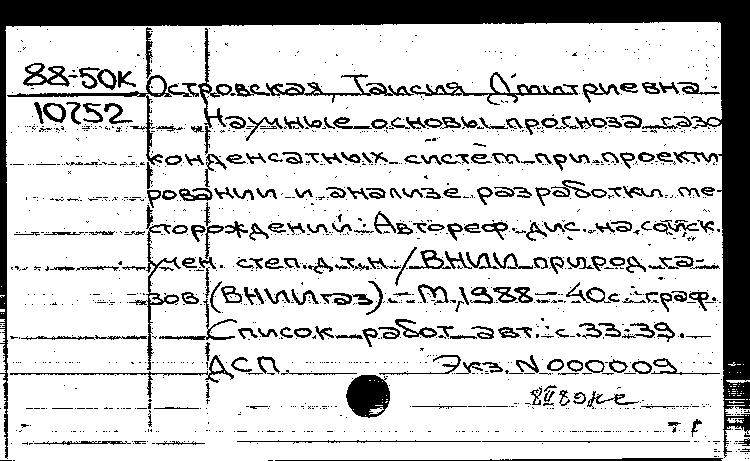 88-50К Островская, Таисия Дмитриевна.
10752 Научные основы прогноза газо
конденсатных систем при проекти-
ровании и анализе разработки ме-
сторождений: Автореф. дис. на соиск.
учен. степ. д.т.н. / ВНИИ природ. га-
зов (ВНИИгаз). - М., 1988 - 40с.: граф.
Список работ авт.: с. 33-39.
ДСП. Экз. N 000009